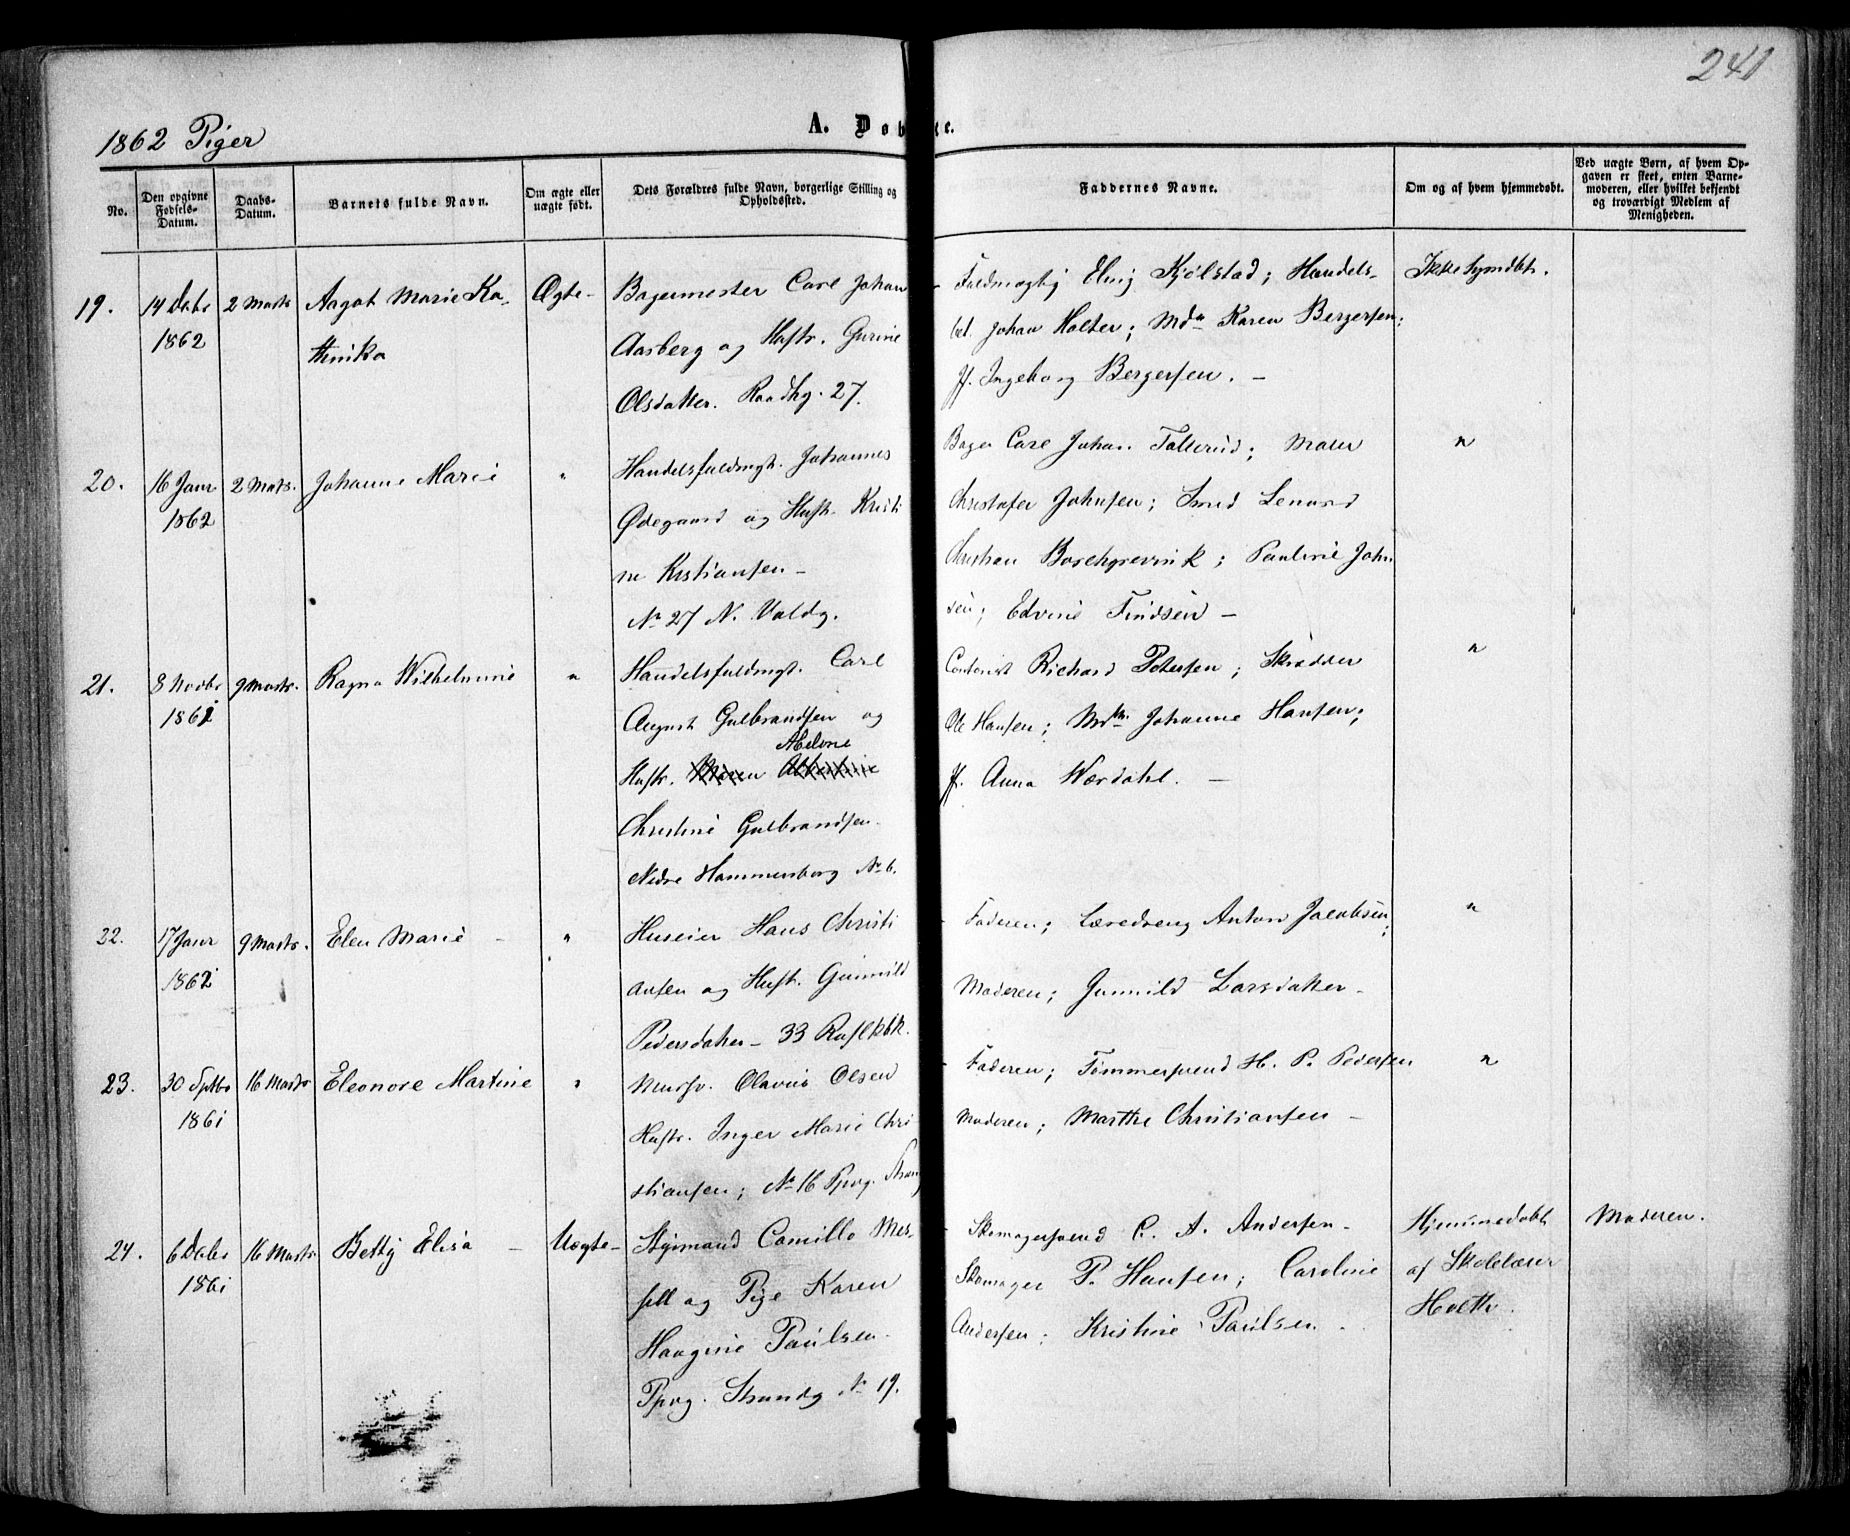 241
1862 Piger
A. Døbte.
No.
Den opgivne Fødsels-Datum.
Daabs-Datum.
Barnets fulde Navn.
Om ægte eller uægte født.
Dets Forældres fulde Navn, borgerlige Stilling og Opholdssted.
Faddernes Navne.
Om og af hvem hjemmedøbt.
Ved uægte Børn, af hvem Opgaven er skeet, enten Barnemoderen, eller hvilket bekjendt og troværdigt Medlem af Menigheden.
19.
14 Decbr
1862
2 Marts
Aagot Marie Ka-
thinka
Ægte
Bagermester Carl Johan
Aasberg og Hustr. Gurine
Olsdatter. Raadhg. 27.
Fuldmægtig Elling Kjølstad; Handels-
bet. Johan Holter; Mdm Karen Bergersen;
Jf. Ingeborg Bergersen. –
Ikke hjemdbt.
20.
16 Janr
1862
2 Marts.
Johanne Marie
"
Handelsfuldmgt. Johannes
Ødegaard og Hustr. Kristi
ne Kristiansen –
No 27 N. Voldg.
Bager Carl Johan Tallerud; Maler
Christofer Johnsen; Smed Lenard
Christian Borchgrevink; Pauline John
sen; Edvine Findsen –
"
21.
8 Novbr
1861
9 Marts.
Ragna Wilhelmine
"
Handelsfuldmgt. Carl
August Gulbrandsen og
Abelone
Hustr.
Christine Gulbrandsen.
Nedre Hammersborg No 6.
Contorist Richard Petersen; Skrædder
Ole Hansen; Mdm. Johanne Hansen;
Jf. Anna Werdahl. –
"
22.
17 Janr
1862
9 Marts.
Elen Marie –
"
Huseier Hans Christi
ansen og Hustr. Gunnild
Pedersdatter – 33 Ruslkbk.
Faderen; Læredreng Anton Jacobsen;
Moderen; Gunnild Larsdatter –
"
23.
30 Sptbr
1861
16 Marts
Eleonore Martine
"
Mursv. Olavus Olsen
Hustr. Inger Marie Chri
stiansen; No 16 Ppvg. Strang
Faderen; Tømmersvend H. P. Pedersen
Moderen; Marthe Christiansen –
"
24.
6 Decbr
1861
16 Marts.
Betty Elisa –
Uægte –
Styrmand Camillo Mes-
sell og Pige Karen
Haagine Paulsen.
Ppvg. Strandg No 19.
Skomagersvend C. A. Andersen –
Skomager P. Hansen; Caroline
Andersen; Kristine Paulsen.
Hjemmedøbt
af Skolelærer
Holth.
Moderen.